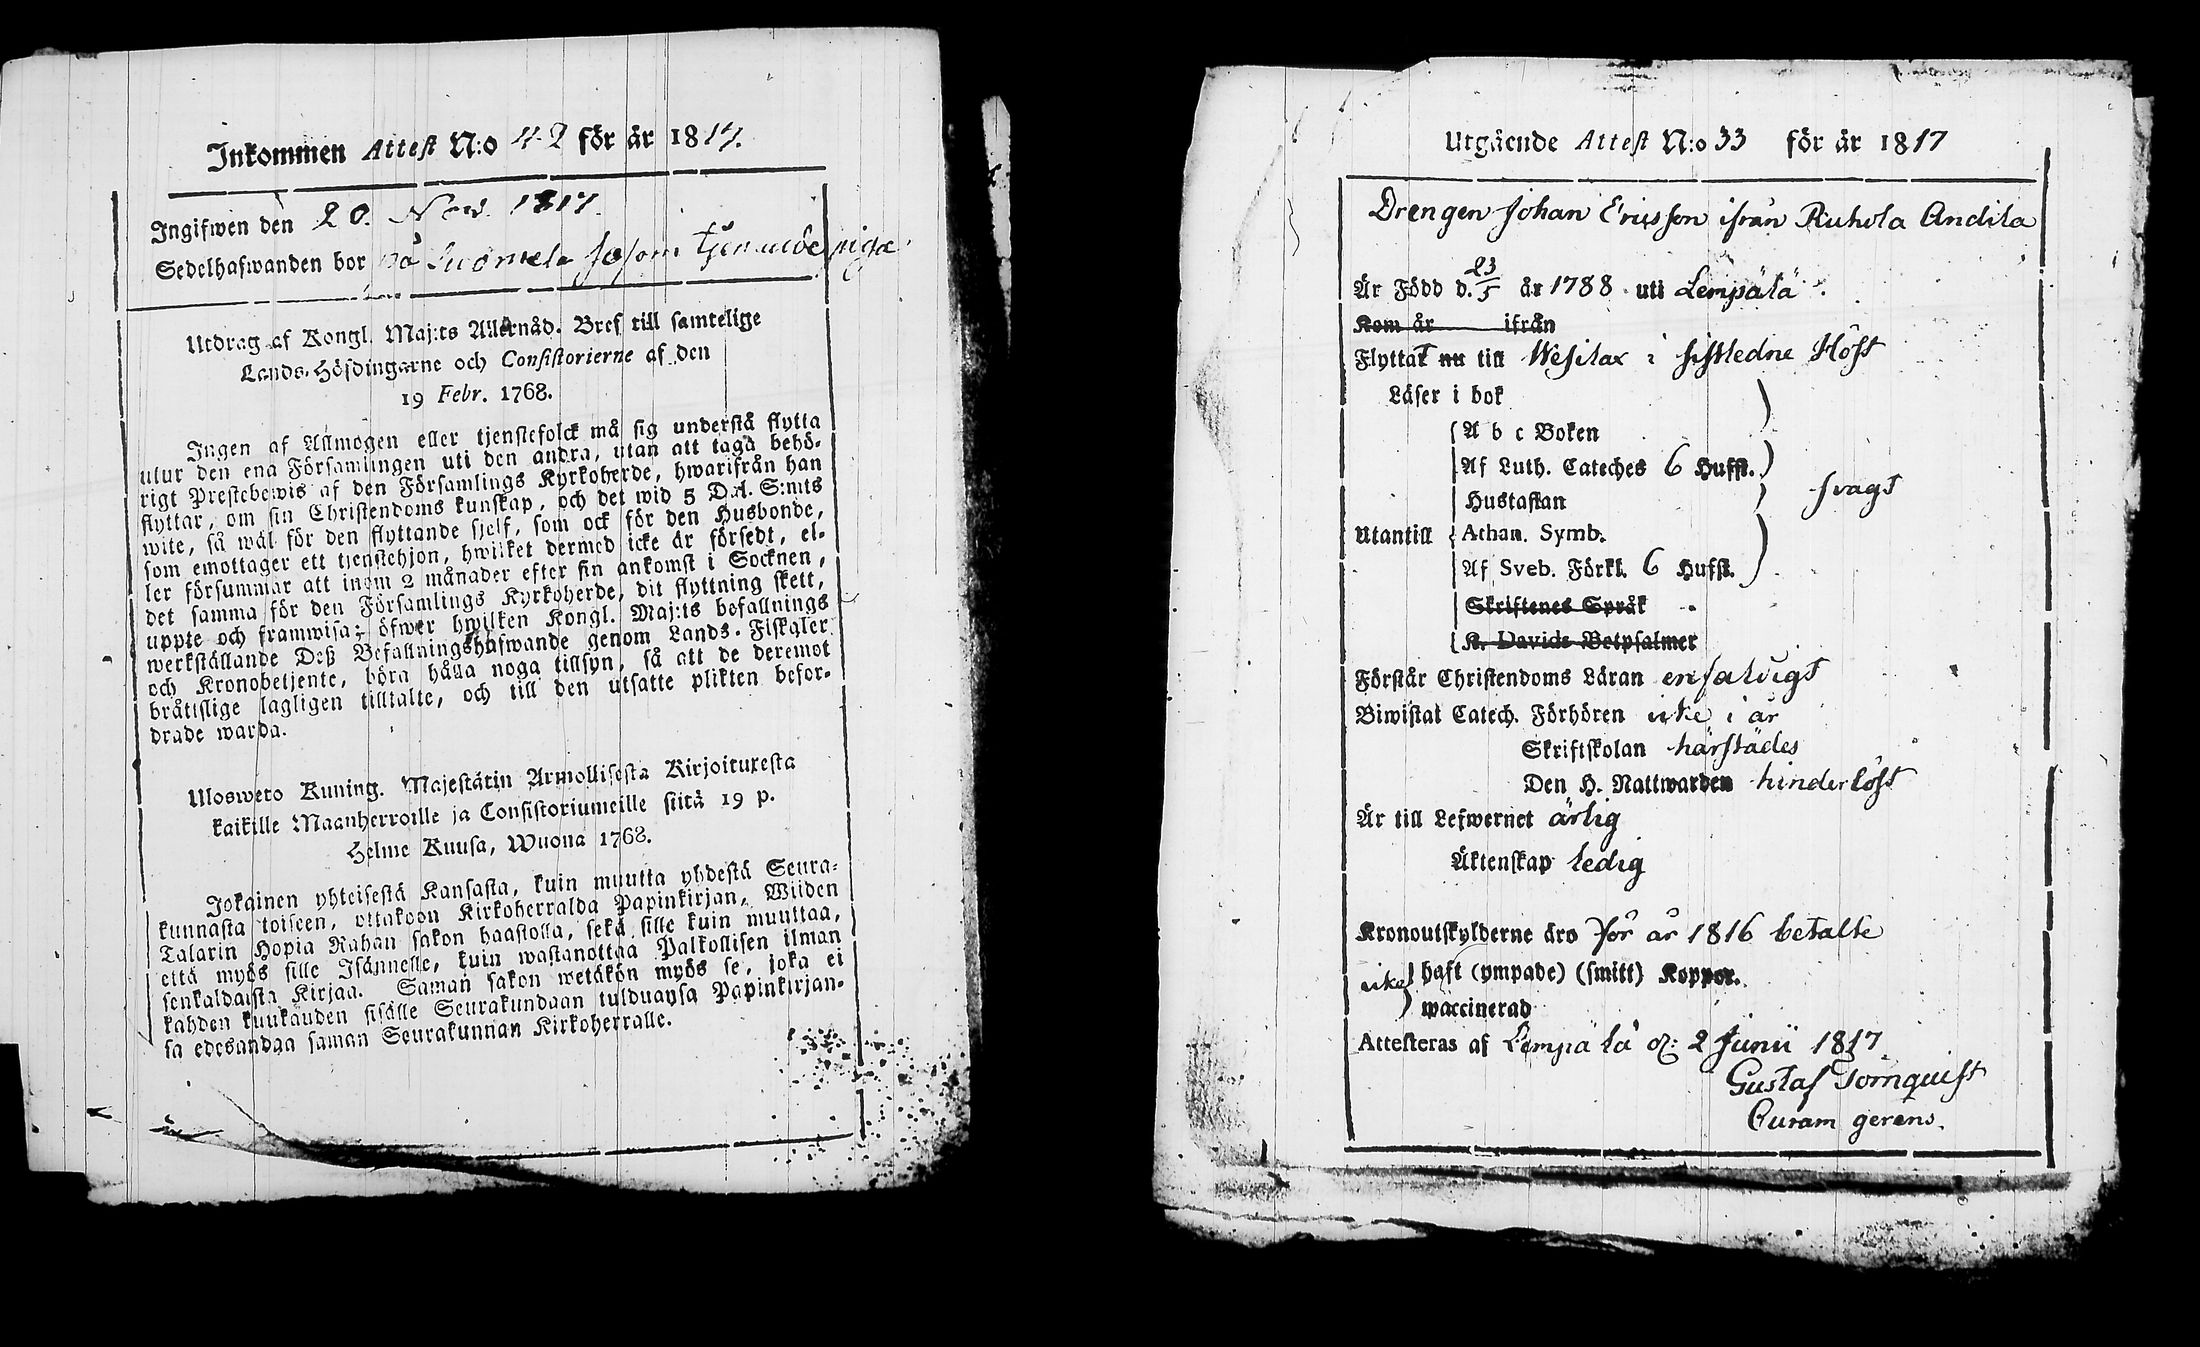 Inkommen Attest N:o 42 för år 1817.
Ingifwen den 20. Nov. 1817.
Sedelhafwanden bor på såsom tjenande piga
Utdrag af Kongl. Maj:ts Allernåd. Bref till samtelige
Lands-Höfdingarne och Consistorierne af den
19 Febr. 1768.
Ingen af Allmogen eller tjenstefolck må sig understå flytta
utur den ena Församlingen uti den andra, utan att taga behö-
rigt Prestebewis af den Församlings Kyrkoherde, hwarifrån han
flyttar, om sin Christendoms kunskap, och det wid 5 Dal. S:mts
wite, så wäl för den flyttande sjelf, som ock för den Husbonde,
som emottager ett tjenstehjon, hwilket dermed icke är försedt, el-
ler försummar att inom 2 månader efter sin ankomst i Socknen,
det samma för den Församlings Kyrkoherde, dit flyttning skett,
uppte och framwisa; öfwer hwilken Kongl. Maj:ts befallnings
werkställande Deß Befallningshafwande genom Lands-Fiskaler
och Kronobetjente, böra hålla noga tillsyn, så att de deremot
bråttslige lagligen tilltalte, och till den utsatte plikten befor-
drade warda.
Ulosweto Kuning. Majestätin Armollisesta Kirjoituxesta
kaikille Maanherroille ja Consistoriumeille siitä 19 p.
Helme Kuusa, Wuona 1768.
Jokainen yhteisestä Kansasta, kuin muutta yhdestä Seura-
kunnasta toiseen, ottakoon Kirkoherralda Papinkirjan, Wiiden
Talarin Hopia Rahan sakon haastolla, sekä sille kuin muuttaa,
että myös sille Isännelle, kuin wastanottaa Palkollisen ilman
senkaldaista Kirjaa. Saman sakon wetäkön myös se, joka ei
kahden kuukauden sisälle Seurakundaan tulduansa Papinkirjan-
sa edesandaa saman Seurakunnan Kirkoherralle.
Utgående Attest N:o 33 för år 1817
Drengen Johan Ericsson ifrån Kuhola Andila
Är Född d. 23/5 år 1788 uti Lempälä.
Kom år ifrån
Flyttat nu till Wesilax i sistledne Höst
Läser i bok
A b c Boken
Af Luth. Cateches 6 Hufst.
Hustaflan
svagt
Utantill Athan. Symb.
Af Sveb. Förkl. 6 Hufst.
Skriftenes Språk
K. Davids Botpsalmer
Förstår Christendoms Läran enfaldigt
Biwistat Catech. Förhören icke i år
Skriftskolan härstädes
Den H. Nattwarden hinderlöst
Är till Lefwernet ärlig
Äktenskap ledig
Kronoutskylderne äro för år 1816 betalte
icke haft (ympade) (smitt) Koppor.
waccinerad
Attesteras af Lempälä d: 2 Junii 1817.
Gustaf Tornquist
Curam gerens.